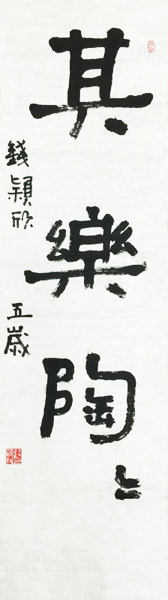 其樂陶〻
錢穎欣 五歲